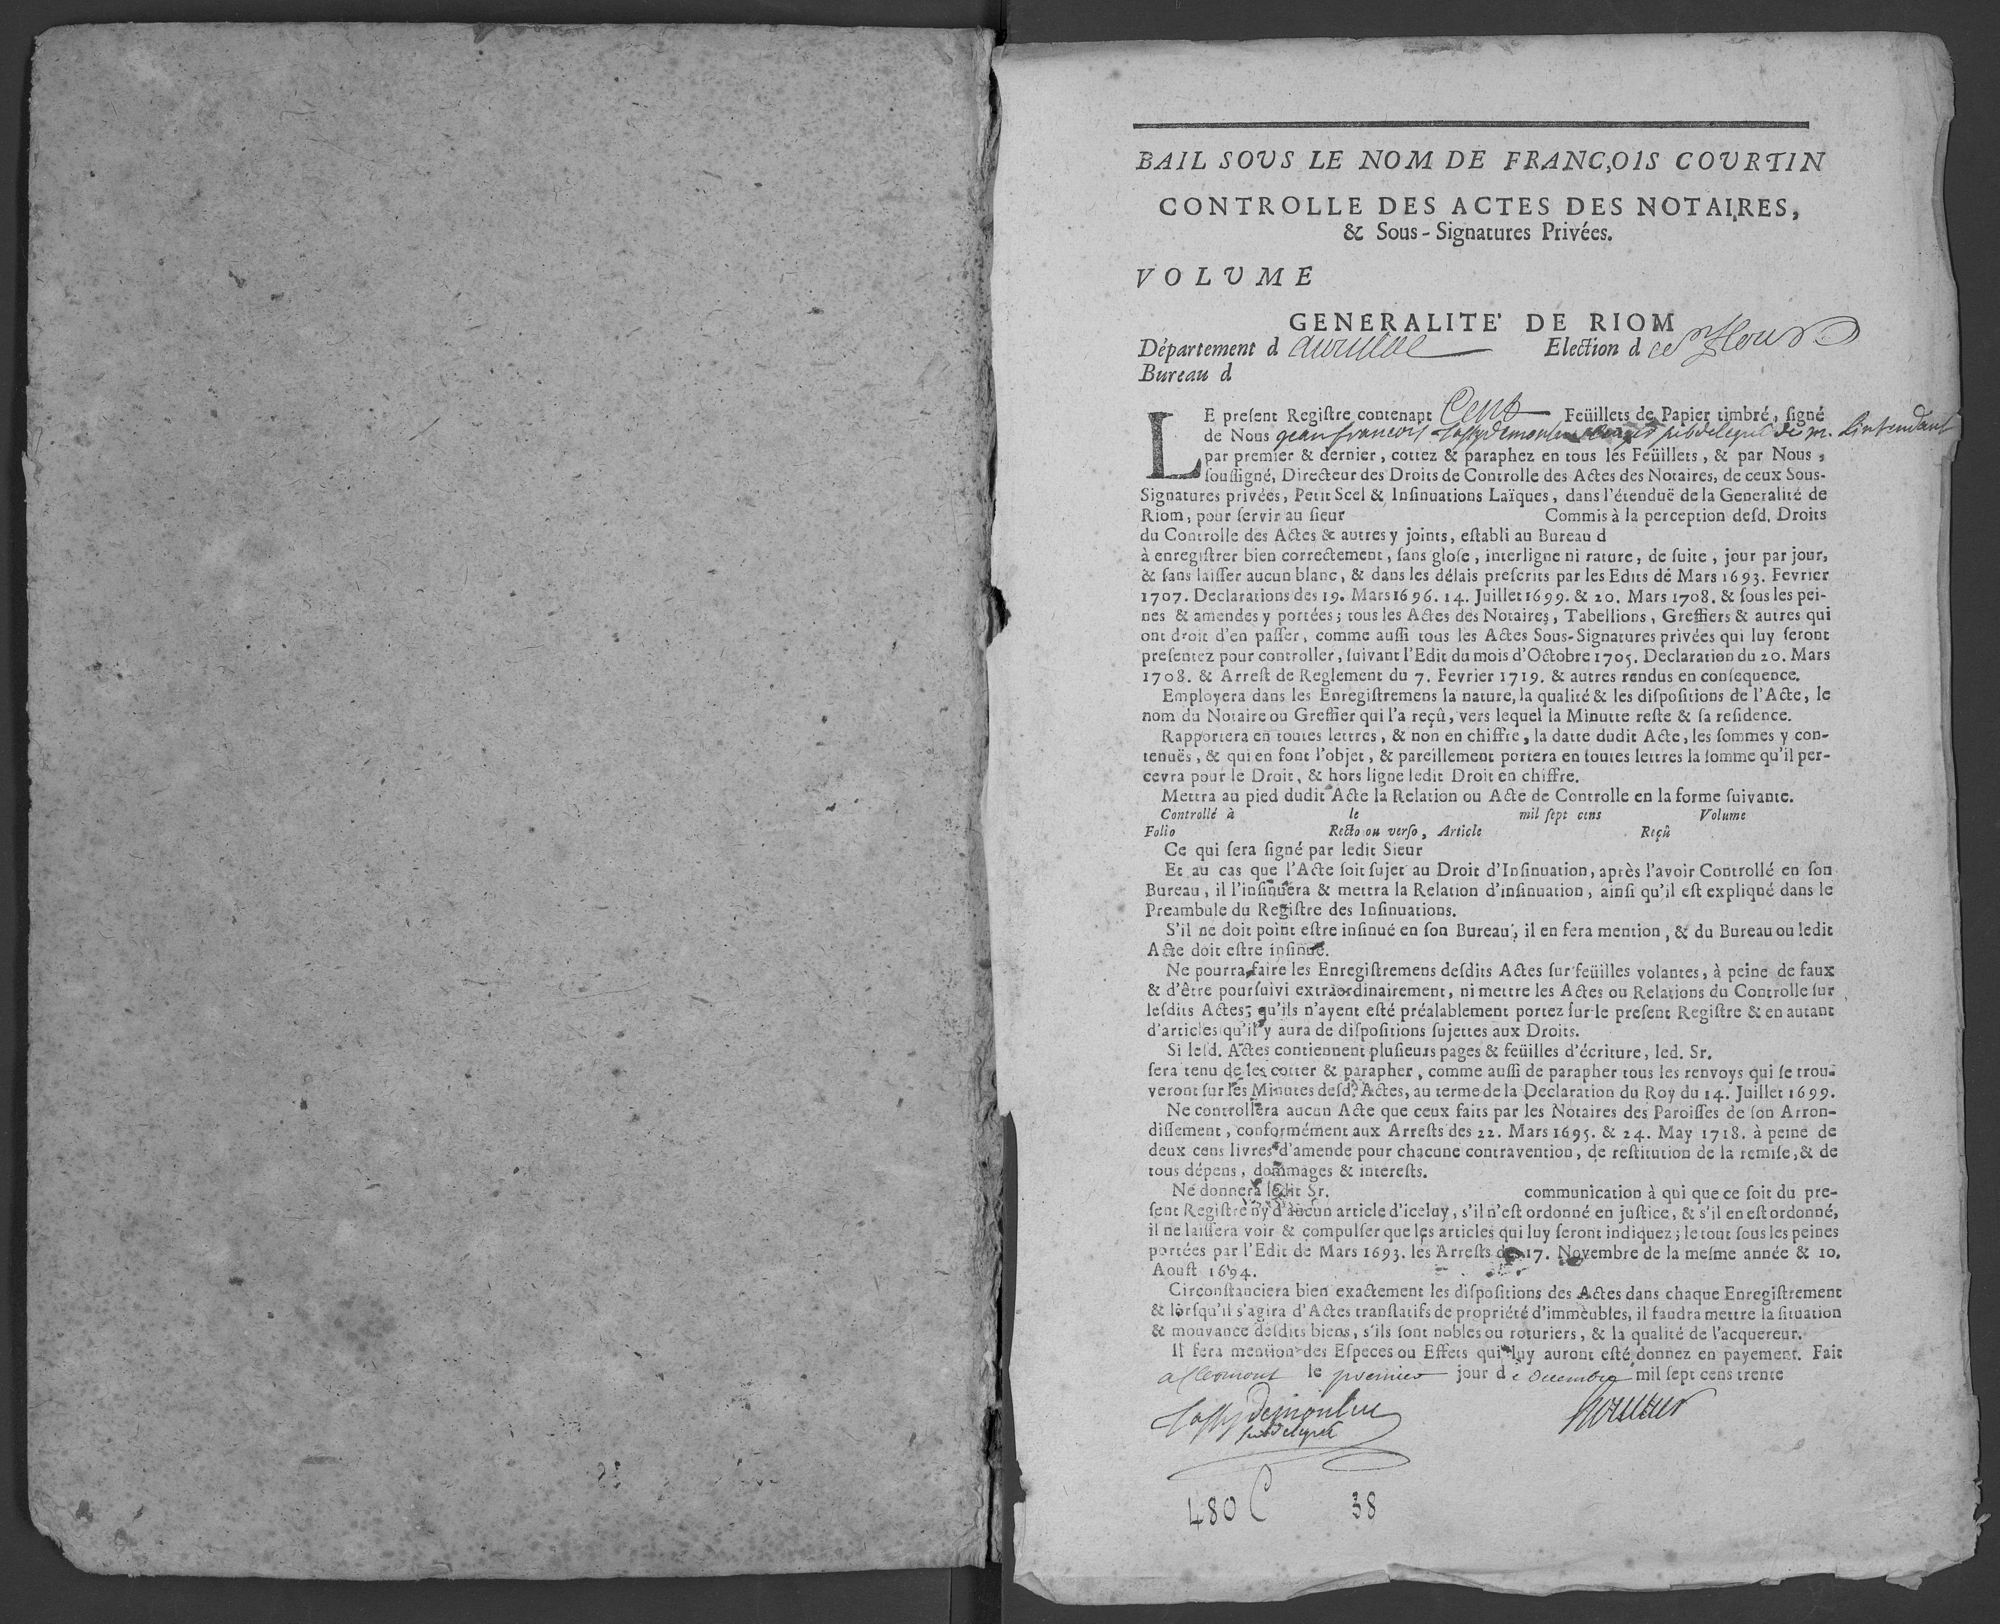 BAIL SOUS LE NOM DE FRANC,OIS COURTIN
CONTROLLE DES ACTES DES NOTAIRES,
& Sous-Signatures Privées.
VOLUME
GENERALITE' DE RIOM
Département d aurillac Election d de St flour
Bureau d
LE present Registre contenant Cent Feüillets de Papier timbré, signé
de Nous jean francois subdelegué de m. Lintendant
par premier & dernier, cottez & paraphez en tous les Feüillets, & par Nous,
soussigné, Directeur des Droits de Controlle des Actes des Notaires, de ceux Sous-
Signatures privées, Petit Scel & Insinuations Laïques, dans l'étenduë de la Generalité de
Riom, pour servir au sieur Commis à la perception desd. Droits
du Controlle des Actes & autres y joints, establi au Bureau d
à enregistrer bien correctement, sans glose, interligne ni rature, de suite, jour par jour,
& sans laisser aucun blanc, & dans les délais prescrits par les Edits de Mars 1693. Fevrier
1707. Declarations des 19. Mars 1696. 14. Juillet 1699. & 20. Mars 1708. & sous les pei-
nes & amendes y portées; tous les Actes des Notaires, Tabellions, Greffiers & autres qui
ont droit d'en passer, comme aussi tous les Actes Sous-Signatures privées qui luy seront
presentez pour controller, suivant l'Edit du mois d'Octobre 1705. Declaration du 20. Mars
1708. & Arrest de Reglement du 7. Fevrier 1719. & autres rendus en consequence.
Employera dans les Enregistremens la nature, la qualité & les dispositions de l'Acte, le
nom du Notaire ou Greffier qui l'a reçû, vers lequel la Minutte reste & sa residence.
Rapportera en toutes lettres, & non en chiffre, la datte dudit Acte, les sommes y con-
tenuës, & qui en font l'objet, & pareillement portera en toutes lettres la somme qu'il per-
cevra pour le Droit, & hors ligne ledit Droit en chiffre.
Mettra au pied dudit Acte la Relation ou Acte de Controlle en la forme suivante.
Controllé à le mil sept cens Volume
Folio Recto ou verso, Article Reçû
Ce qui sera signé par ledit Sieur
Et au cas que l'Acte soit sujet au Droit d'Insinuation, après l'avoir Controllé en son
Bureau, il l'insinuera & mettra la Relation d'insinuation, ainsi qu'il est expliqué dans le
Preambule du Registre des Insinuations.
S'il ne doit point estre insinué en son Bureau, il en fera mention, & du Bureau ou ledit
Acte doit estre insinué.
Ne pourra faire les Enregistremens desdits Actes sur feüilles volantes, à peine de faux
& d'être poursuivi extraordinairement, ni mettre les Actes ou Relations du Controlle sur
lesdits Actes; qu'ils n'ayent esté préalablement portez sur le present Registre & en autant
d'articles qu'il y aura de dispositions sujettes aux Droits.
Si lesd. Actes contiennent plusieurs pages & feüilles d'écriture, led. Sr.
sera tenu de les cotter & parapher, comme aussi de parapher tous les renvoys qui se trou-
veront sur les Minutes desd. Actes, au terme de la Declaration du Roy du 14. Juillet 1699.
Ne controllera aucun Acte que ceux faits par les Notaires des Paroisses de son Arron-
dissement, conformément aux Arrests des 22. Mars 1695. & 24. May 1718. à peine de
deux cens livres d'amende pour chacune contravention, de restitution de la remise, & de
tous dépens, dommages & interests.
Ne donnera ledit Sr. communication à qui que ce soit du pre-
sent Registre n'y d'aucun article d'iceluy, s'il n'est ordonné en justice, & s'il en est ordonné,
il ne laissera voir & compulser que les articles qui luy seront indiquez; le tout sous les peines
portées par l'Edit de Mars 1693. les Arrests des 17. Novembre de la mesme année & 10.
Aoust 1694.
Circonstanciera bien exactement les dispositions des Actes dans chaque Enregistrement
& lorsqu'il s'agira d'Actes translatifs de propriété d'immeubles, il faudra mettre la situation
& mouvance desdits biens, s'ils sont nobles ou roturiers, & la qualité de l'acquereur.
Il fera mention des Especes ou Effets qui luy auront esté donnez en payement. Fait
a Clermont le premier jour de decembre mil sept cens trente
subdelegué
480 C 38